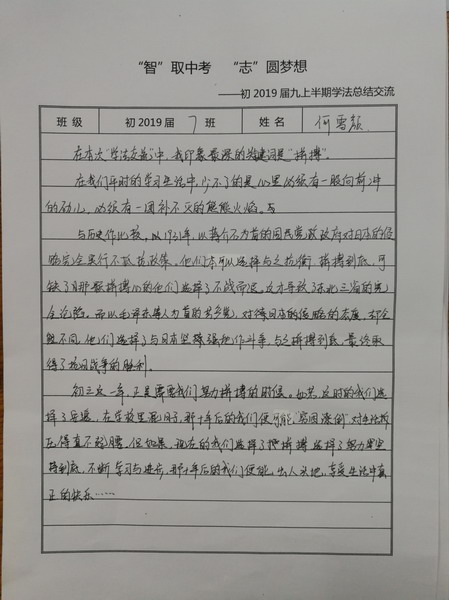 “智”取中考 “志”圆梦想
——初2019届九上半期学法总结交流
班级 初2019届 7班 姓名 何雪颜
在本次“学法交流”中,我印象最深的关键词是“拼搏”。
在我们平时的学习生活中,少不了的是心里必须有一股向前冲
的劲儿,必须有一团扑不灭的熊熊火焰。与
与历史作比较,以1931年,以蒋介石为首的国民党政府对日本的侵
略完全实行不抵抗政策,他们本可以选择与之抗衡,拼搏到底,可
缺了那颗拼搏心的他们选择了不战而退,这才导致了东北三省的完
全沦陷。而以毛泽东等人为首的共产党,对待日本的侵略的态度,却全
然不同,他们选择了与日本坚持强硬作斗争,与之拼搏到底,最终取
得了抗日战争的胜利。
初三这一年,正是需要我们努力拼搏的时候。如果,这时的我们选
择了安逸,在学校里混日子,那十年后的我们便可能“穷困潦倒”,对生活
压得直不起腰,但如果,现在的我们选择了拼搏,选择了努力
到底,不断学习与进步,那十年后的我们便能,出人头地,享受生活中真
正的快乐……